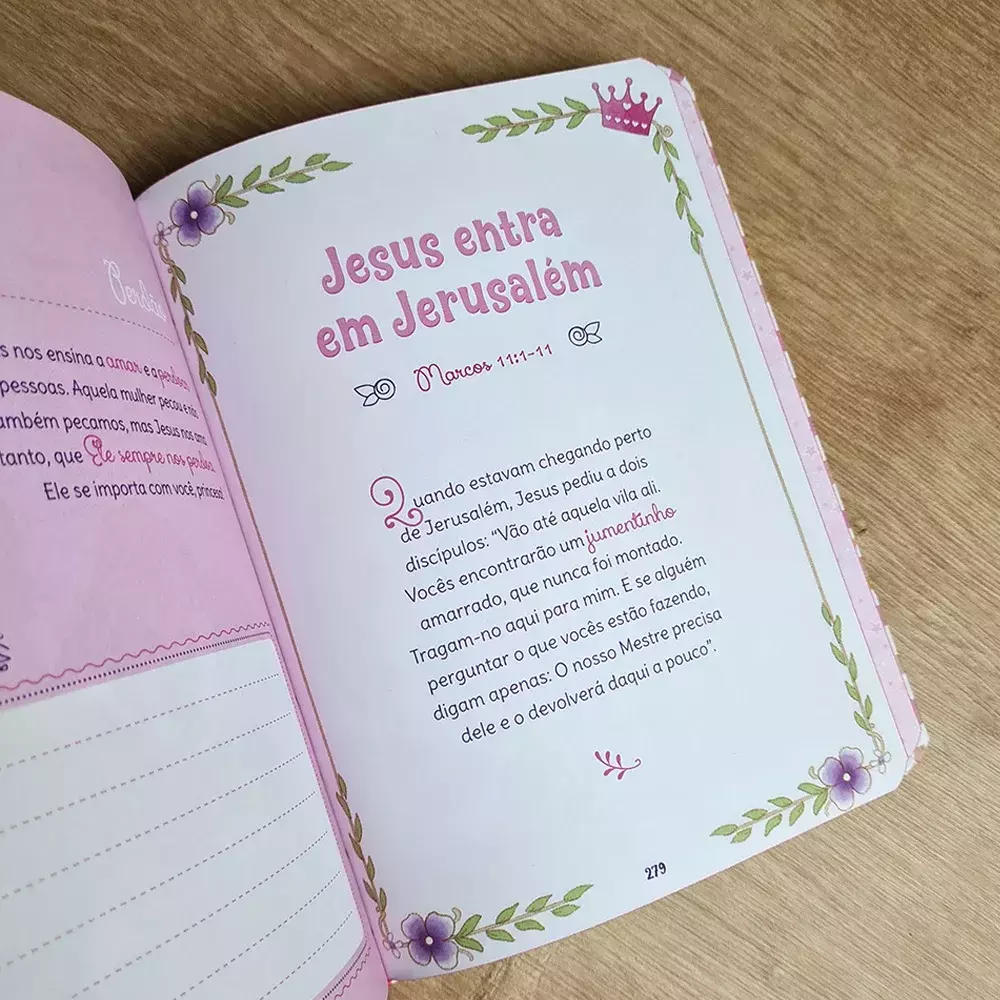 s nos ensina a amar e a perdoar
pessoas. Aquela mulher pecou e nós
ambém pecamos, mas Jesus nos ama
tanto, que Ele sempre nos perdoa.
Ele se importa com você, princesa!
Jesus entra
em Jerusalém
Marcos 11:1-11
Quando estavam chegando perto
de Jerusalém, Jesus pediu a dois
discípulos: “Vão até aquela vila ali.
Vocês encontrarão um jumentinho
amarrado, que nunca foi montado.
Tragam-no aqui para mim. E se alguém
perguntar o que vocês estão fazendo,
digam apenas: O nosso Mestre precisa
dele e o devolverá daqui a pouco”.
279